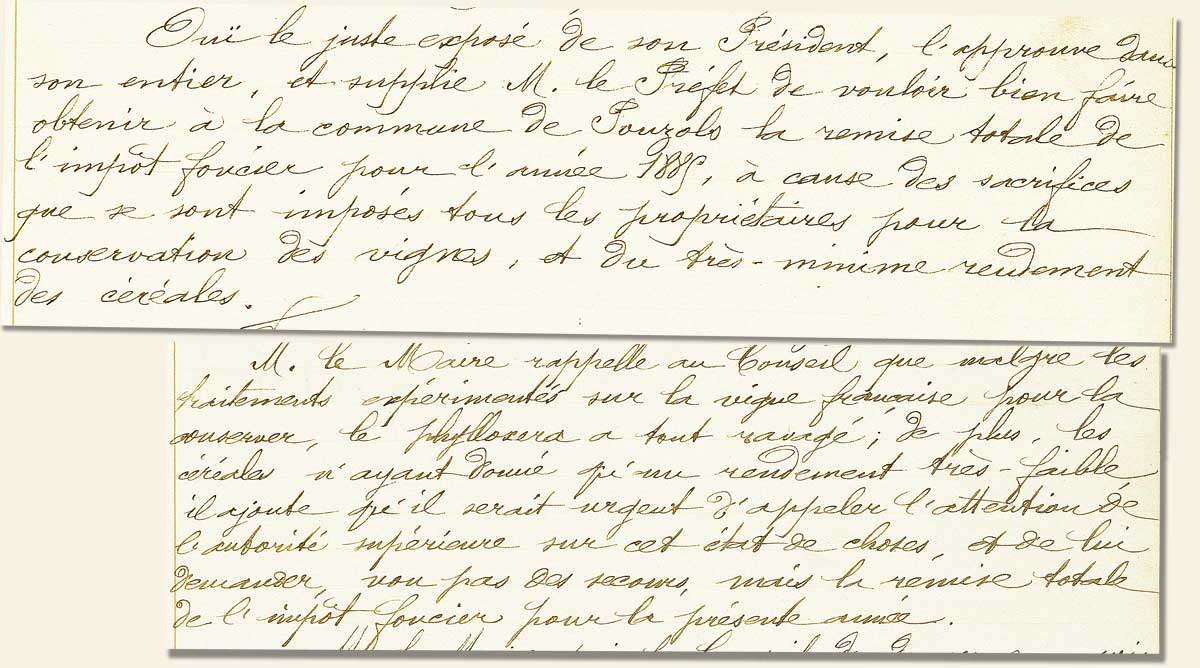 Ouï le juste exposé de son Président, l'approuve dans
son entier, et supplie M. le Préfet de vouloir bien faire
obtenir à la commune de Pouzols la remise totale de
l'impôt foncier pour l'année 1885, à cause des sacrifices
que se sont imposés tous les propriétaires pour la
conservation des vignes, et du très-minime rendement
des céréales.
M. le Maire rappelle au Conseil que malgré les
traitements expérimentés sur la vigne française pour la
conserver, le phylloxera a tout ravagé; de plus, les
céréales n'ayant donné qu'un rendement très-faible
il ajoute qu'il serait urgent d'appeler l'attention de
l'autorité supérieure sur cet état de choses, et de lui
demander, non pas des secours, mais la remise totale
de l'impôt foncier pour la présente année.